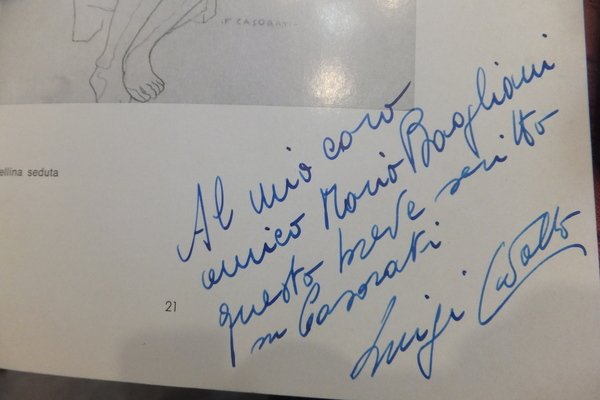 F. CASORATI
ellina seduta
Al mio caro
amico Mario Bagliani
questo breve scritto
su Casorati
Luigi
21